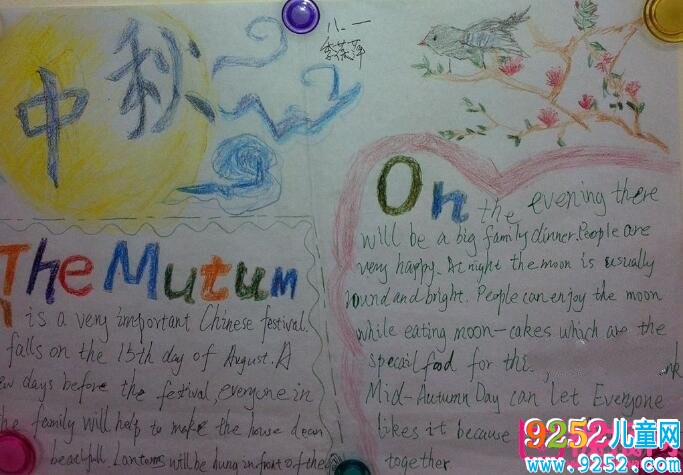 中秋
八.一
The Mutum
is a very important Chinese festival.
falls on the 15th day of August. A
days before the festival, everyone in
the family will help to make the house clean
beautifull. Lanterns will be hung infront of the
On the evening there
will be a big family dinner. People are
very happy. At night the moon is usually
round and bright. People can enjoy the moon
while eating moon-cakes which are the
specail food for
Mid-Autumn Day can let Everyone
likes it because
together
9252儿童网
www.9252.com